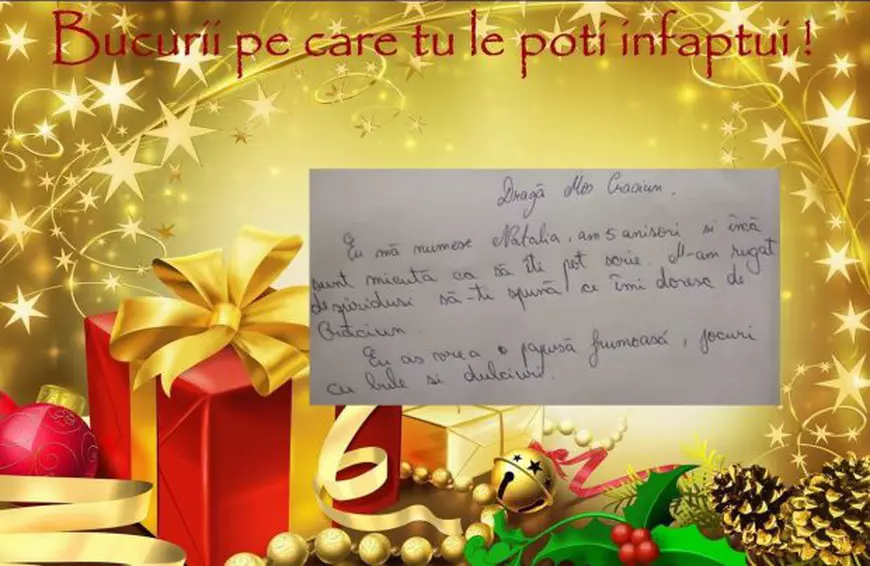 Bucurii pe care tu le poti infaptui !
Dragă Mos Craciun.
Eu mă numesc Natalia, am 5 anisori si încă
sunt micuta ca să îti pot scrie. M-am rugat
de spiridusi să-ti spună ce îmi doresc de
Crăciun.
Eu as vrea o papusă frumoasă, jocuri
cu bile si dulciuri.